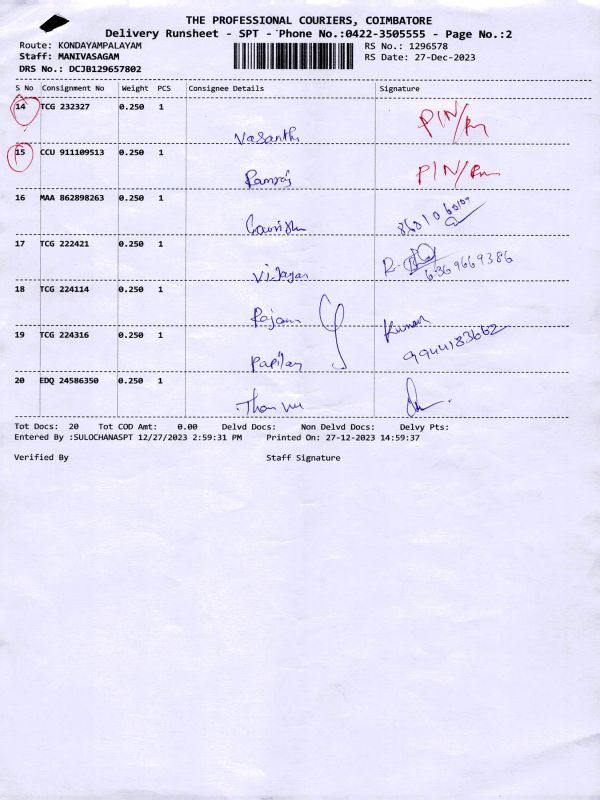 THE PROFESSIONAL COURIERS, COIMBATORE
Delivery Runsheet - SPT - Phone No.:0422-3505555 - Page No.:2
Route: KONDAYAMPALAYAM RS No.: 1296578
Staff: MANIVASAGAM RS Date: 27-Dec-2023
DRS No.: DCJB129657802
S No Consignment No Weight PCS Consignee Details Signature
14 TCG 232327 0.250 1 PIN/Rn
Vasanthi
15 CCU 911109513 0.250 1 PIN/Rn
Ramraj
16 MAA 862898263 0.250 1
17 TCG 222421 0.250 1 R.
Vijayan 6369669386
18 TCG 224114 0.250 1
Rajam Kumar
19 TCG 224316 0.250 1 9944183662
20 EDQ 24586350 0.250 1
Tot Docs: 20 Tot COD Amt: 0.00 Delvd Docs: Non Delvd Docs: Delvy Pts:
Entered By :SULOCHANASPT 12/27/2023 2:59:31 PM Printed On: 27-12-2023 14:59:37
Verified By Staff Signature